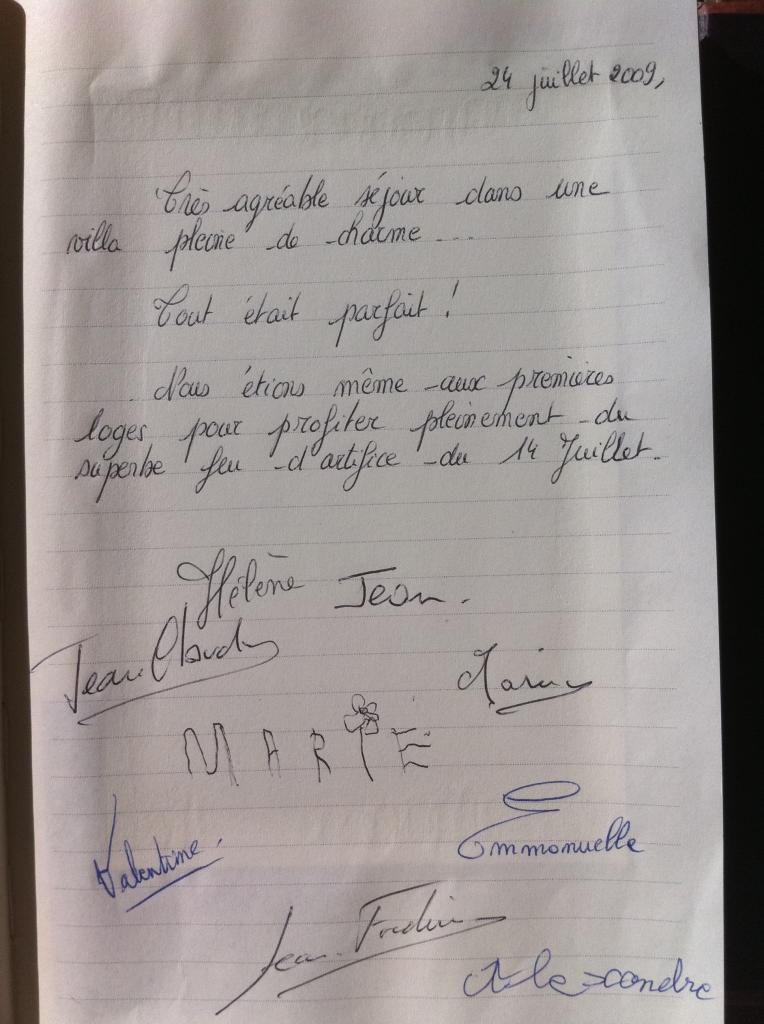 24 juillet 2009,
Très agréable séjour dans une
villa pleine de charme...
Tout était parfait !
Nous étions même aux premières
loges pour profiter pleinement du
superbe feu d'artifice du 14 Juillet.
Hélène Jean.
Jean-Claude
MARIE
Valentine.
Emmanuelle
Jean
Alexandre